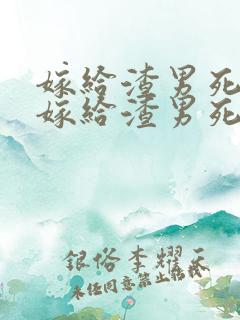 嫁给渣男死
嫁给渣男死
银俗李耀天
未经同意禁止转载